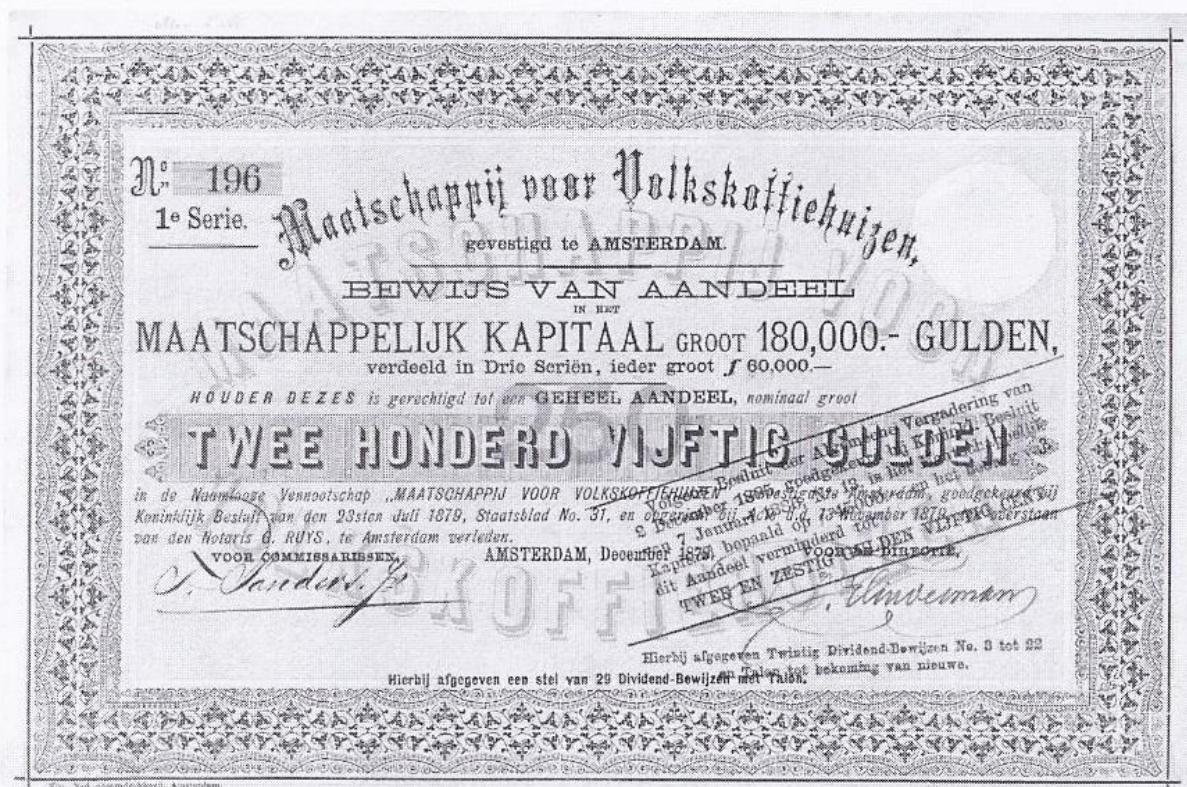 No. 196
1e Serie.
Maatschappij voor Volkskoffiehuizen,
gevestigd te AMSTERDAM.
BEWIJS VAN AANDEEL
IN HET
MAATSCHAPPELIJK KAPITAAL GROOT 180,000.- GULDEN,
verdeeld in Drie Seriën, ieder groot ƒ 60,000.—
HOUDER DEZES is gerechtigd tot een GEHEEL AANDEEL, nominaal groot
250
TWEE HONDERD VIJFTIG GULDEN
in de Naamlooze Vennootschap „MAATSCHAPPIJ VOOR VOLKSKOFFIEHUIZEN" gevestigd te Amsterdam, goedgekeurd bij
Koninklijk Besluit van den 23sten Juli 1879, Staatsblad No. 31, en opgericht bij Acte d.d. 13 November 1879, overstaan
van den Notaris G. RUYS, te Amsterdam verleden.
VOOR COMMISSARISSEN, AMSTERDAM, December 1879, VOOR DE DIRECTIE,
Volgens Besluit der Algemeene Vergadering van
2 December 1895, goedgekeurd bij Koninkl. Besluit
van 7 Januari No. 13, is het Maatschappelijk
Kapitaal bepaald op en het bedrag van
dit Aandeel verminderd tot
TWEE EN ZESTIG GULDEN VIJFTIG
Hierbij afgegeven Twintig Dividend-Bewijzen No. 3 tot 22
en Talon tot bekoming van nieuwe.
Hierbij afgegeven een stel van 29 Dividend-Bewijzen met Talon.
MAATSCHAPPIJ VOOR